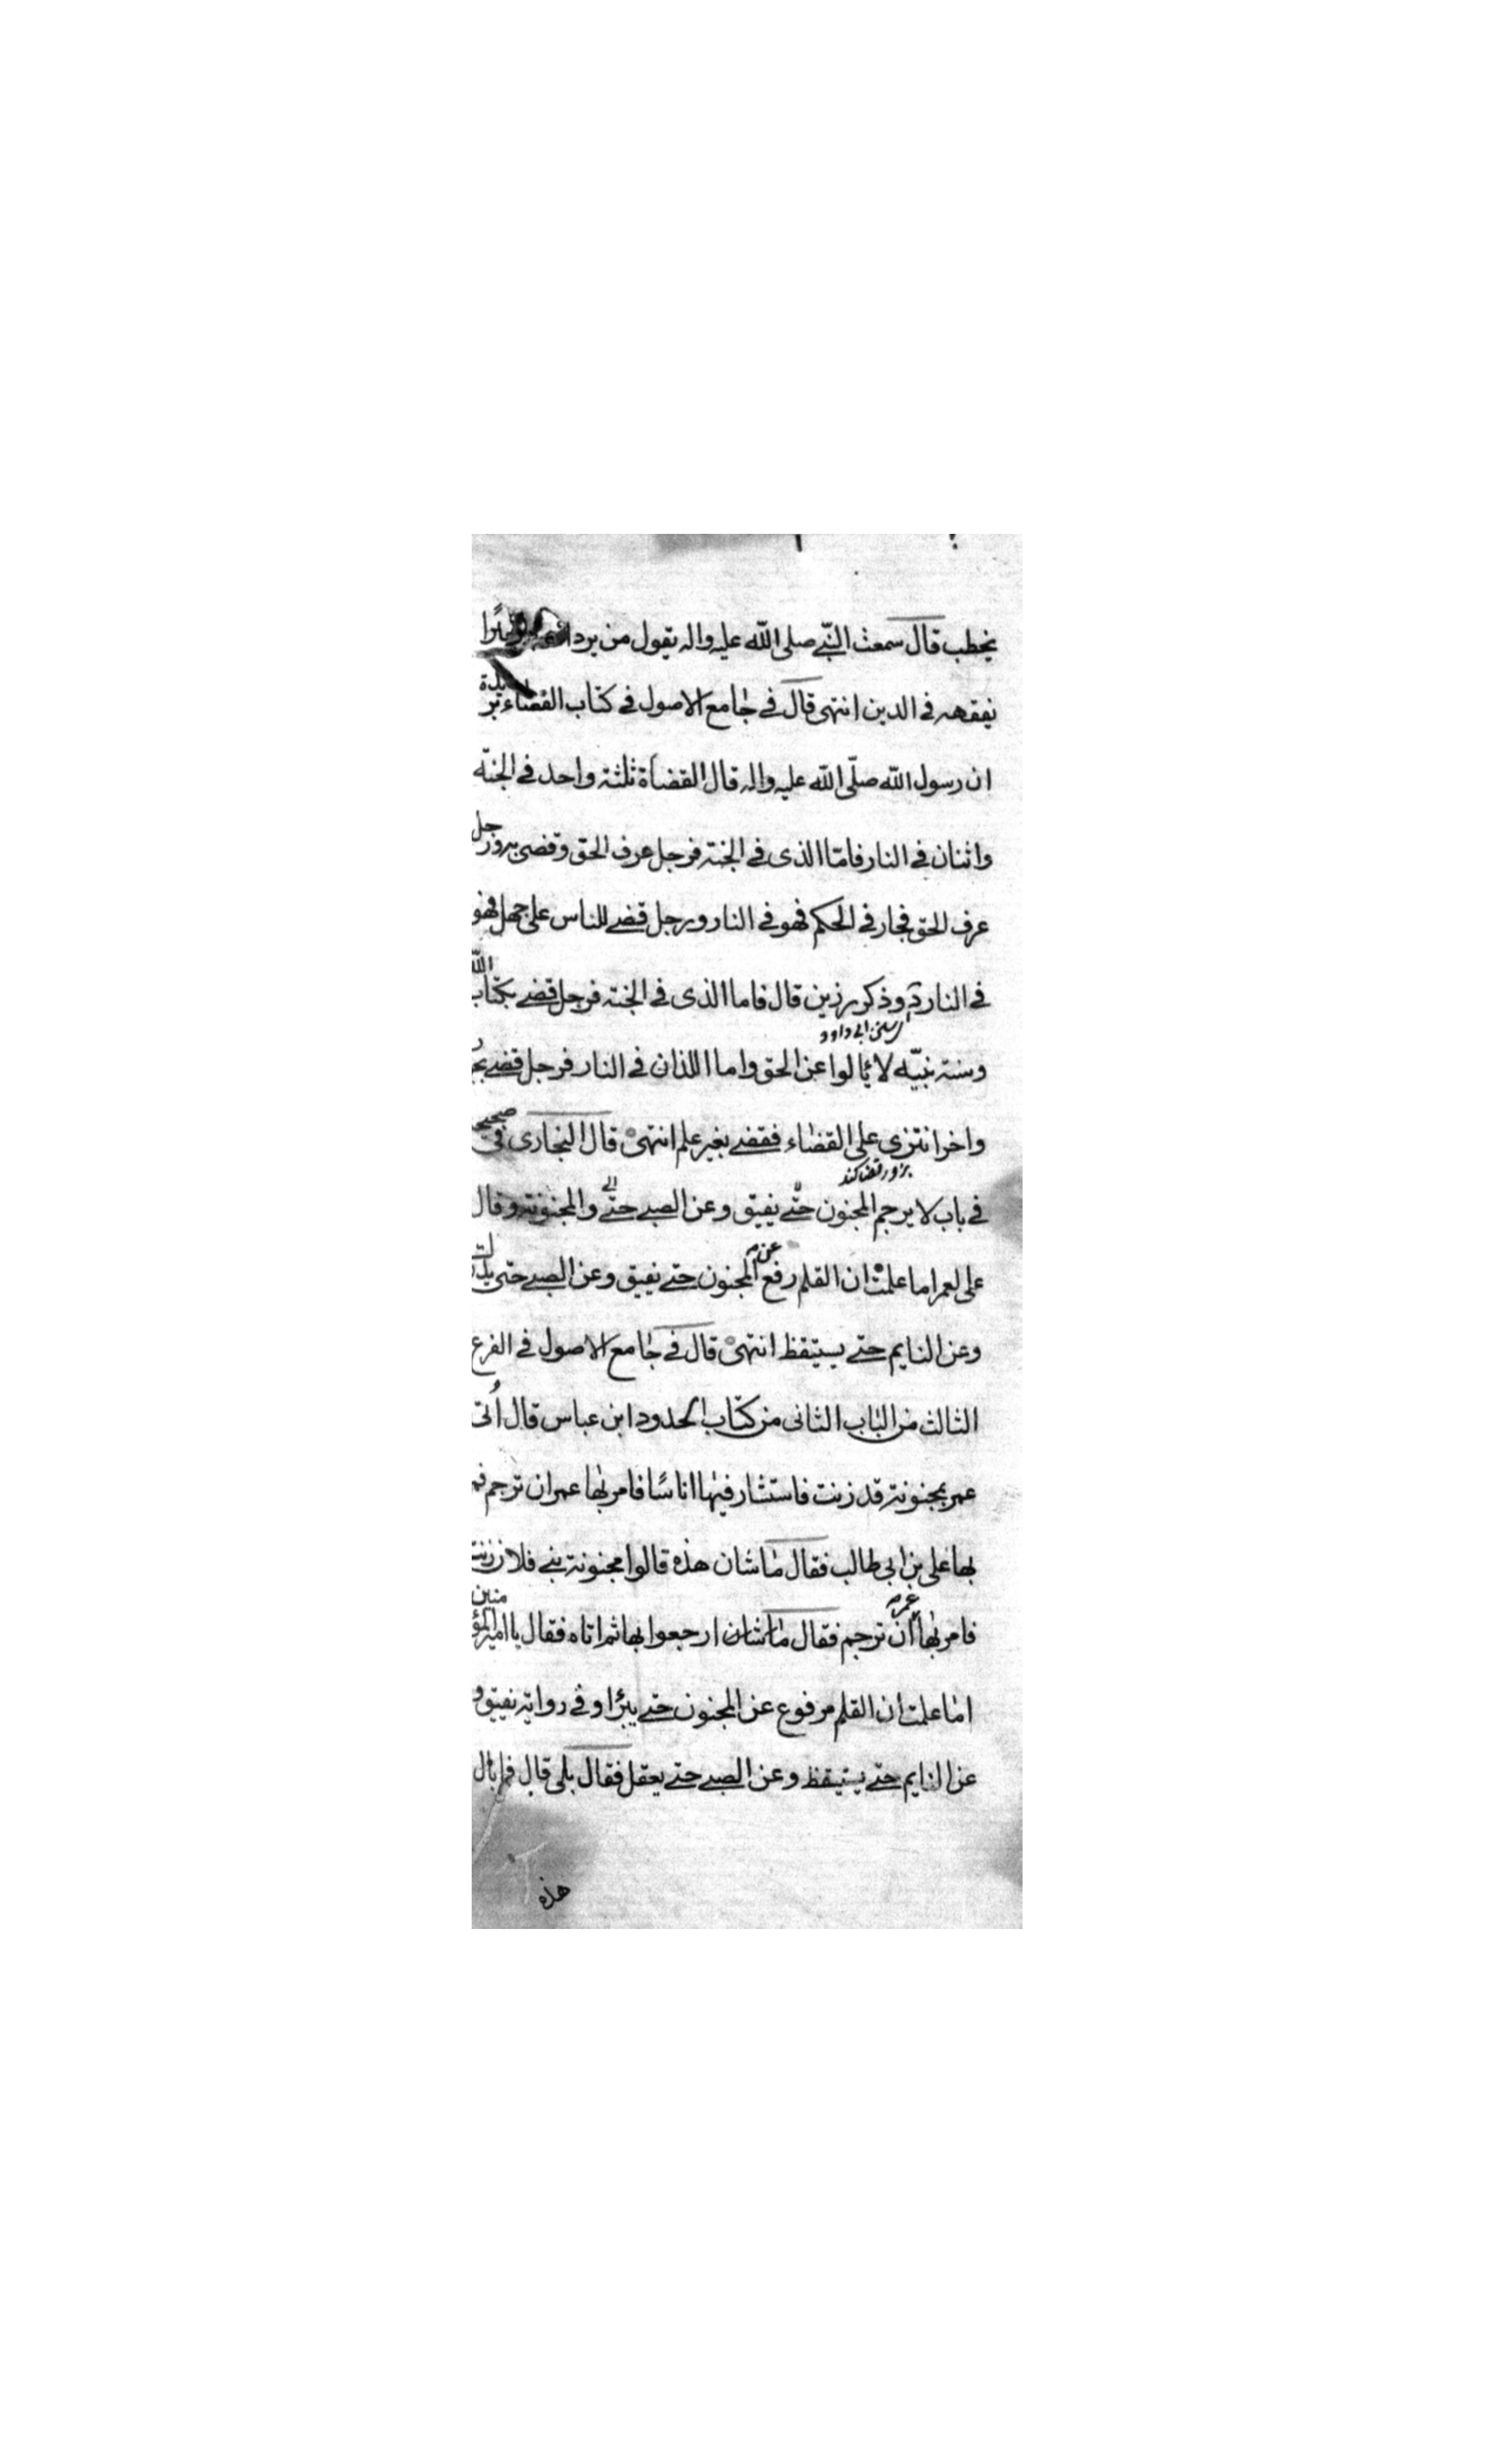 يخطب قال سمعت النبي صلى الله عليه واله يقول من يرد الله به خيرا
يفقهه في الدين انتهى قال في جامع الاصول في كتاب القضاء بريدة
ان رسول الله صلى الله عليه واله قال القضاة ثلثة واحد في الجنة
واثنان في النار فاما الذى في الجنة فرجل عرف الحق وقضى به ورجل
عرف الحق فجار في الحكم فهو في النار ورجل قضى للناس على جهل فهو
في النار د وذكر رزين قال فاما الذى في الجنة فرجل قضى بكتاب الله
سنن ابى داود
وسنة نبيه لا يالوا عن الحق واما اللذان في النار فرجل قضى بجور
واخر انتزى على القضاء فقضى بغير علم انتهى قال البخارى في صحيحه
بزور قضا كند
في باب لا يرجم المجنون حتى يفيق وعن الصبي حتى والمجنونة وقال
على لعمر اما علمت ان القلم رفع عن المجنون حتى يفيق وعن الصبي حتى يدرك
وعن النايم حتى يستيقظ انتهى قال في جامع الاصول في الفرع
الثالث من الباب الثانى من كتاب الحدود ابن عباس قال أتى
عمر بمجنونة قد زنت فاستشار فيها اناسا فامر بها عمر ان ترجم فمر
بها على بن ابى طالب فقال ما شان هذه قالوا مجنونة بنى فلان زنت
فامر بها عمر ان ترجم فقال ما شان ارجعوا بها ثم اتاه فقال يا امير المؤمنين
اما علمت ان القلم مرفوع عن المجنون حتى يبرا وفي رواية يفيق و
عن النايم حتى يستيقظ وعن الصبي حتى يعقل فقال بلى قال فما بال
هذه